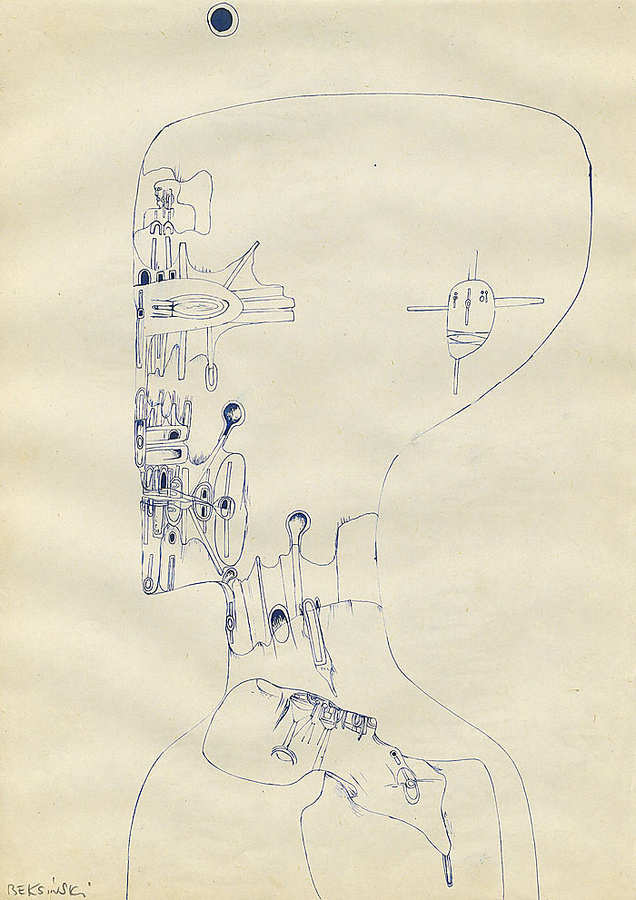 BEKSiŃSKi